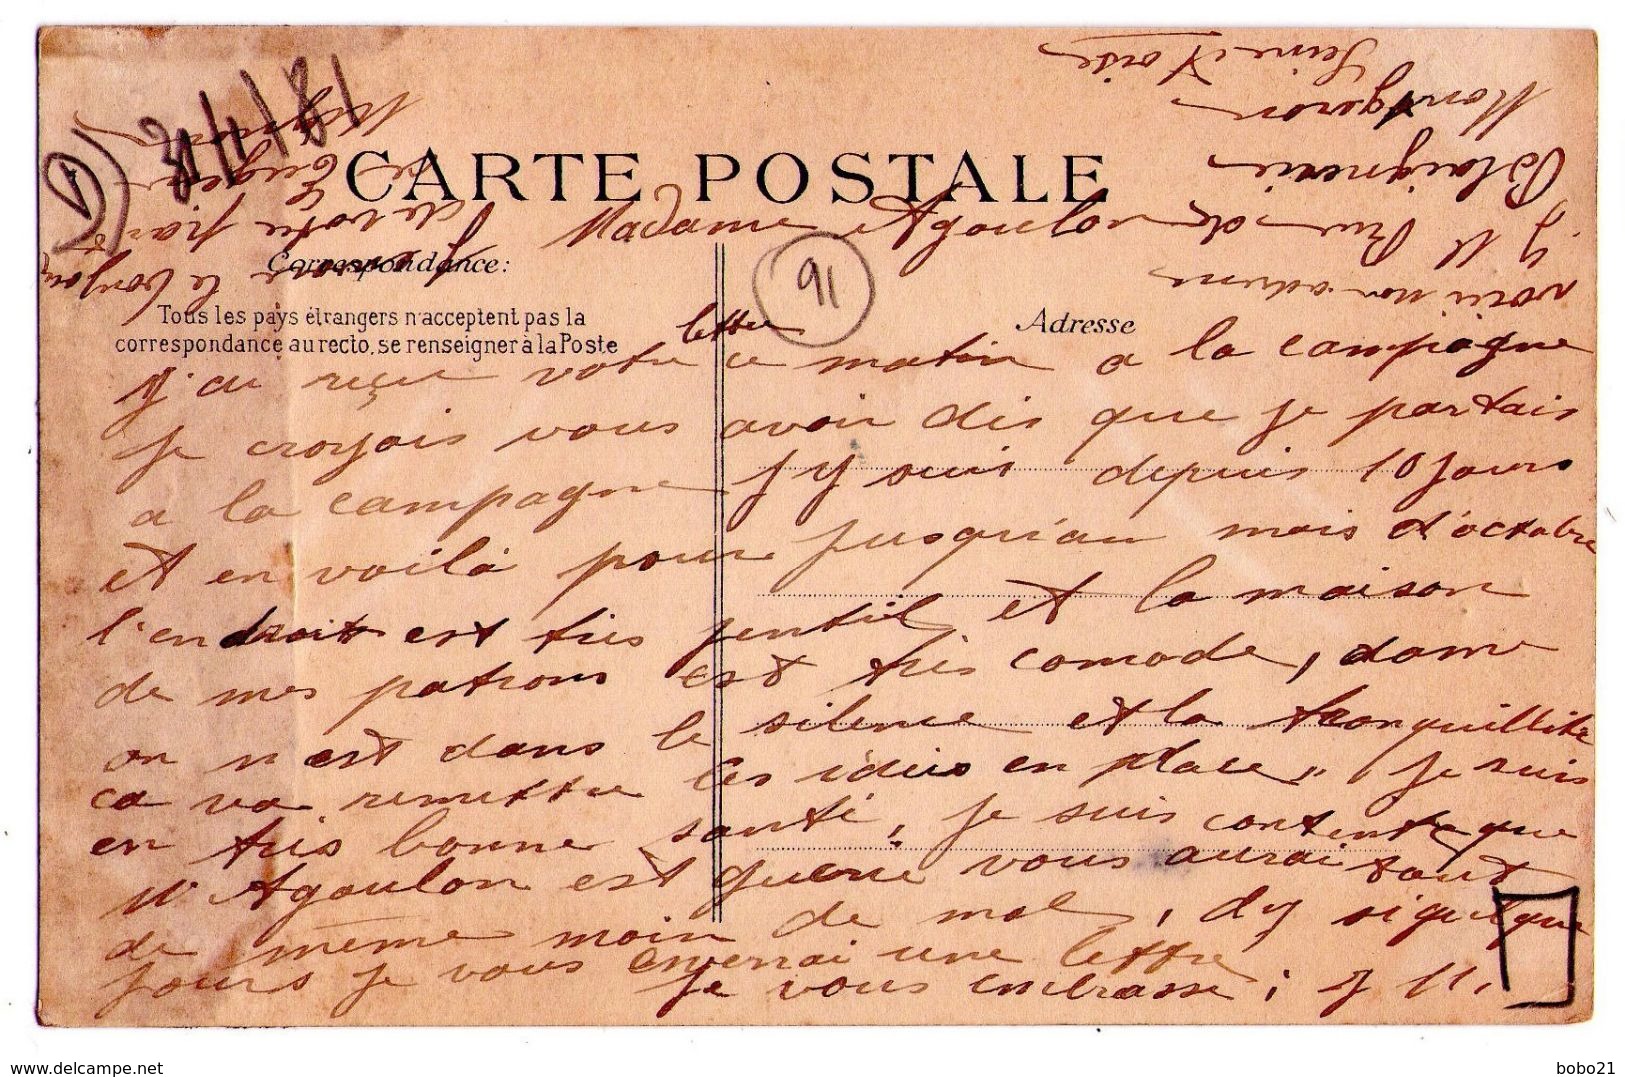 D) 31/1/81
CARTE POSTALE
Madame Agoulon
91
Correspondance:
Adresse
Tous les pays étrangers n'acceptent pas la
correspondance au recto, se renseigner à la Poste
J'ai reçue votre lettre ce matin a la campaigne
je croyais vous avoir dis que je partais
a la campagne j y suis depuis 10 jours
et en voilà pour jusqu'au mois d'octobre
l'endroit est très jentil et la maison
de mes patrons est très comode, dame
on n est dans le silence et la tranquillité
ca va remettre les idées en place. Je suis
en très bonne santé, je suis contente que
Mr Agoulon est guerie vous aurai tout
de même moin de mal, d'y si quelque
jours je vous enverrai une lettre
Je vous embrasse; J M.
voici mon adresse
J M Rue de
Montgeron
Seine et Oise
le bonjour
de votre
www.delcampe.net
bobo21